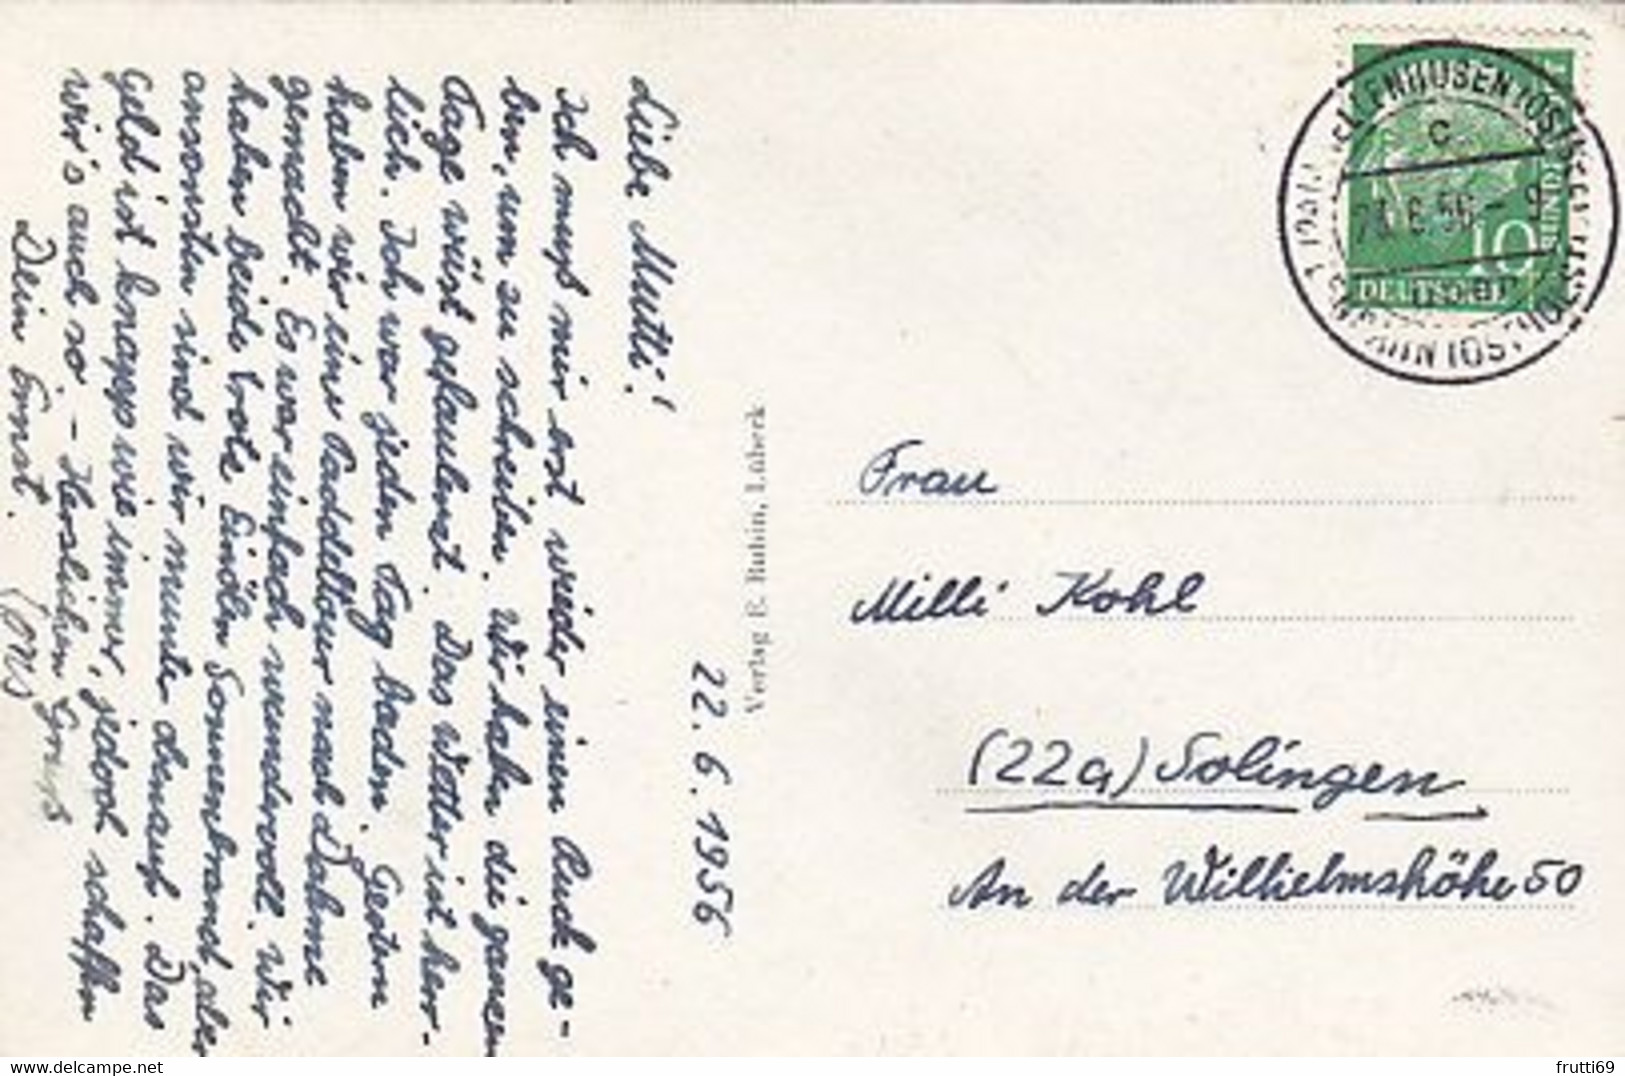 22. 6. 1956
Liebe Mutti!
Ich muß mir erst wieder einen Ruck ge-
ben, um zu schreiben. Wir haben die ganzen
Tage wüst gefaulenzt. Das Wetter ist herr-
lich. Ich war jeden Tag baden. Gestern
haben wir eine Paddeltour nach Dahme
gemacht. Es war einfach wundervoll. Wir
haben beide rote Sonnenbrand, aber
ansonsten sind wir munter. Das
Geld ist knapp wie immer, jedoch schaffen
wir's auch so. – Herzlichen Gruß
Dein Ernst.
Verlag E. Rubin, Lübeck
DEUTSCHE
10
C
56
Frau
Milli Kohl
(22a) Solingen
An der Wilhelmshöhe 50
frutti69